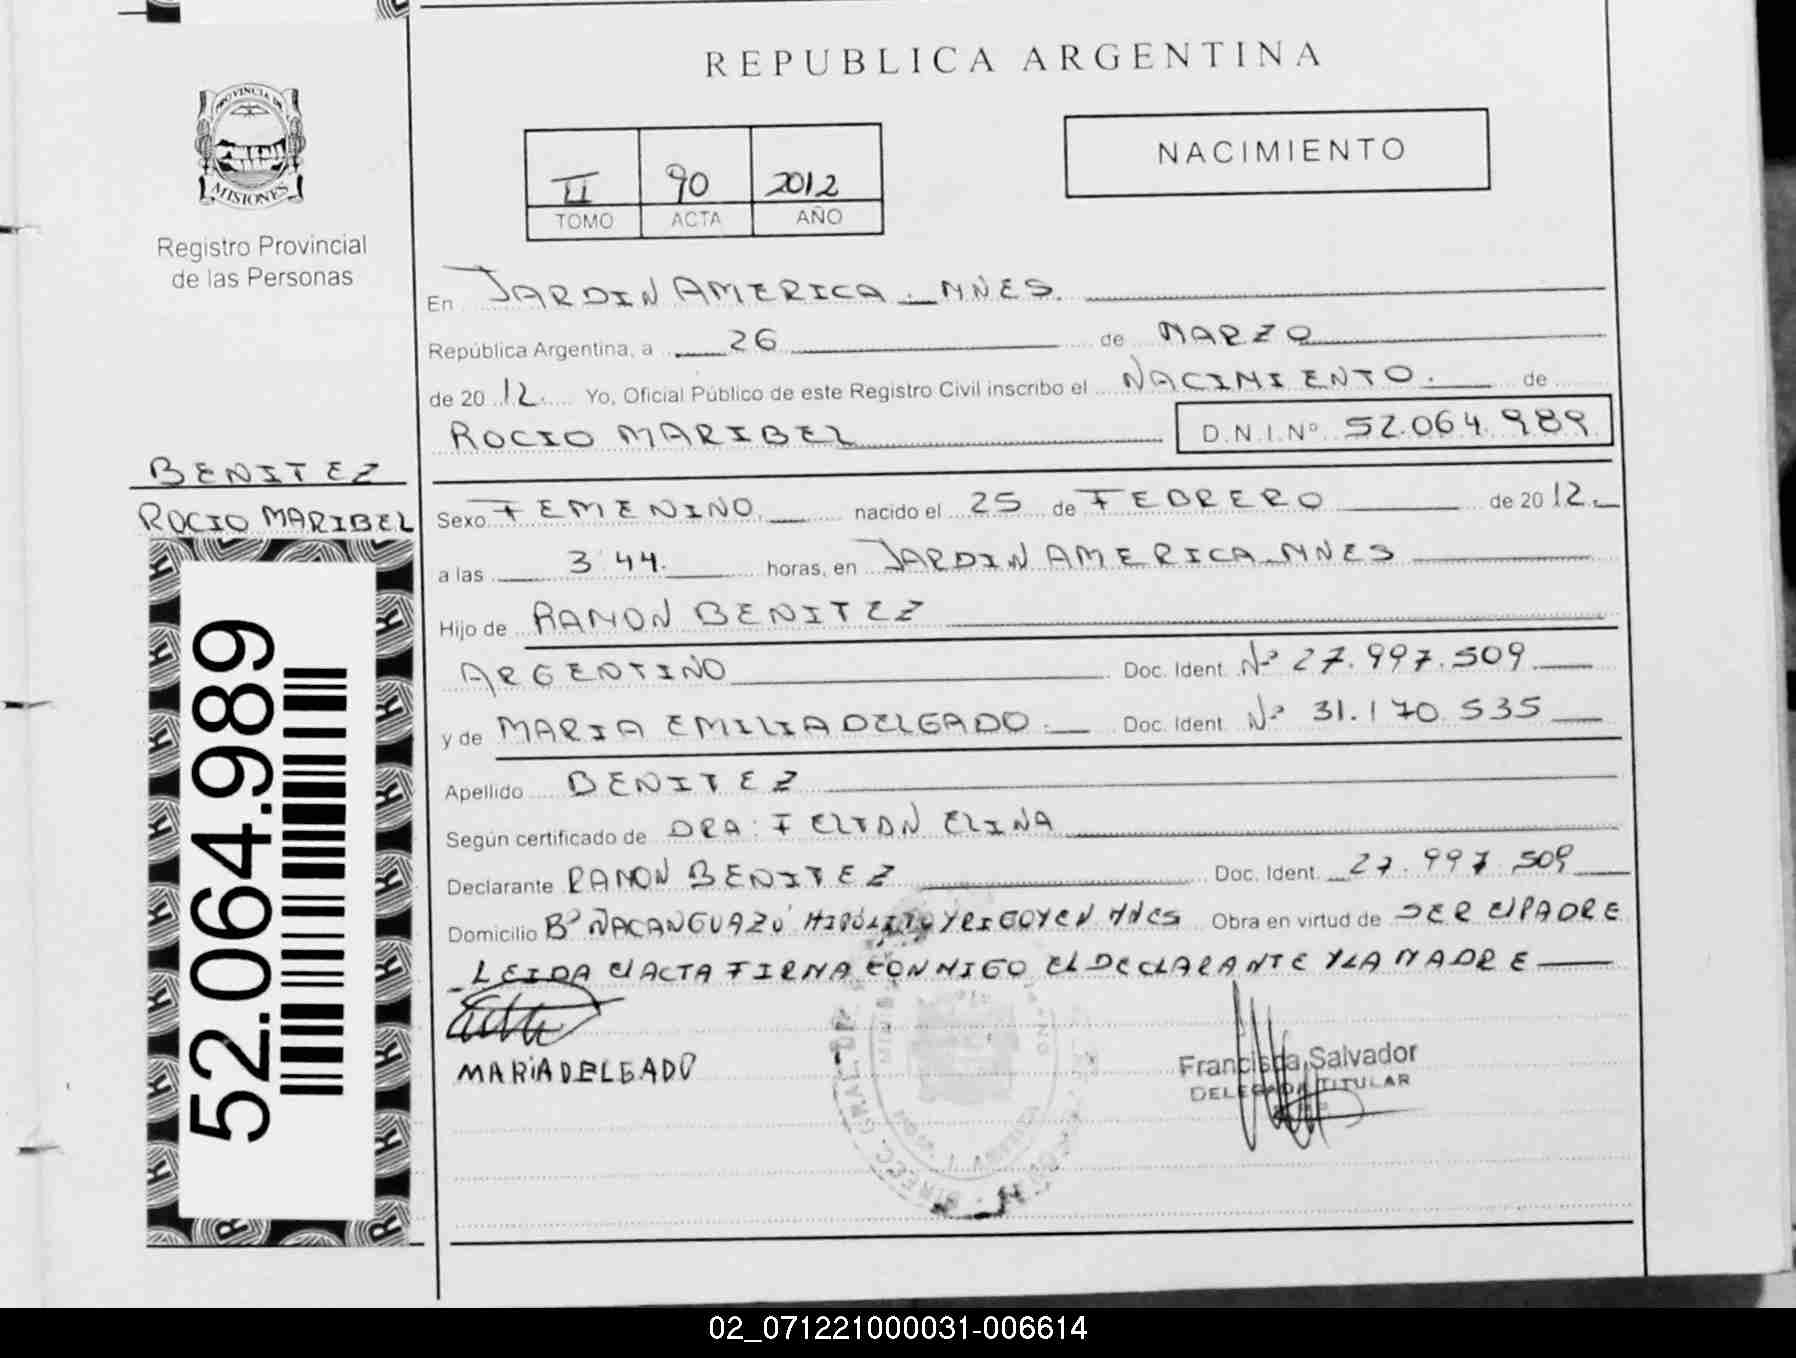 REPUBLICA ARGENTINA
PROVINCIA DE
MISIONES
Registro Provincial
de las Personas
NACIMIENTO
II 90 2012
TOMO ACTA AÑO
En JARDIN AMERICA. MNES.
República Argentina, a 26 de MARZO
de 2012. Yo, Oficial Público de este Registro Civil inscribo el NACIMIENTO. de
ROCIO MARIBEL D.N.I.Nº 52.064.989
BENITEZ
ROCIO MARIBEL
52.064.989
Sexo FEMENINO. nacido el 25 de FEBRERO de 2012.
a las 3'44. horas, en JARDIN AMERICA. MNES
Hijo de RAMON BENITEZ
ARGENTINO Doc. Ident. Nº 27.997.509.
y de MARIA EMILIA DELGADO. Doc. Ident. Nº 31.170.535
Apellido BENITEZ
Según certificado de DRA: FELTAN ELINA
Declarante RAMON BENITEZ Doc. Ident. 27.997.509
Domicilio Bº ÑACANGUAZÚ HIPÓLITO YRIGOYEN MNES Obra en virtud de SER El PADRE
LEIDA El ACTA FIRMA CONMIGO El DECLARANTE Y LA MADRE
MARiA DELGADO
Francisca Salvador
DELEGADA TITULAR
02_071221000031-006614